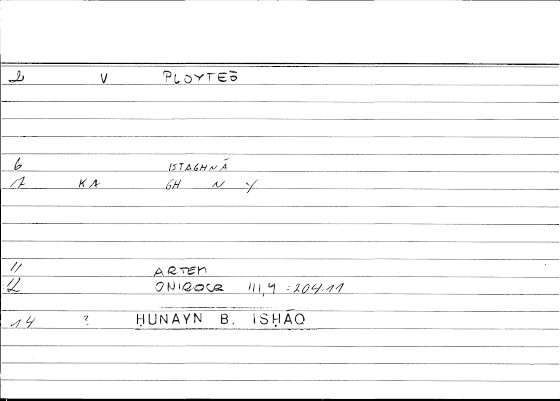 2 V PLOYTEŌ
6 ISTAGHNĀ
7 KA GH N Y
11 ARTEM
12 ONIROCR III,4 :204.11
14 ? ḤUNAYN B. ISḤĀQ